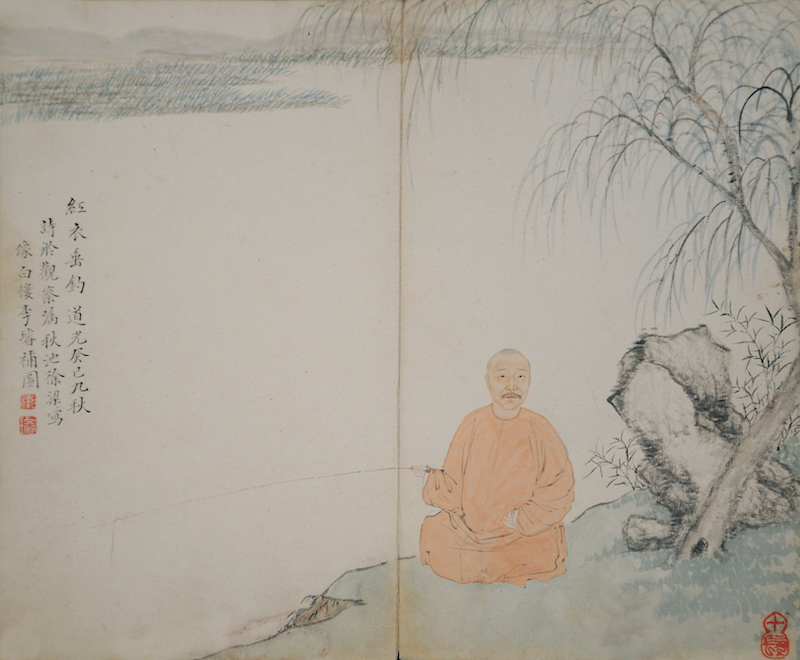 紅衣垂釣 道光癸巳九秋
詩舲觀察屬秋池徐梁寫
像白樓李 補圖